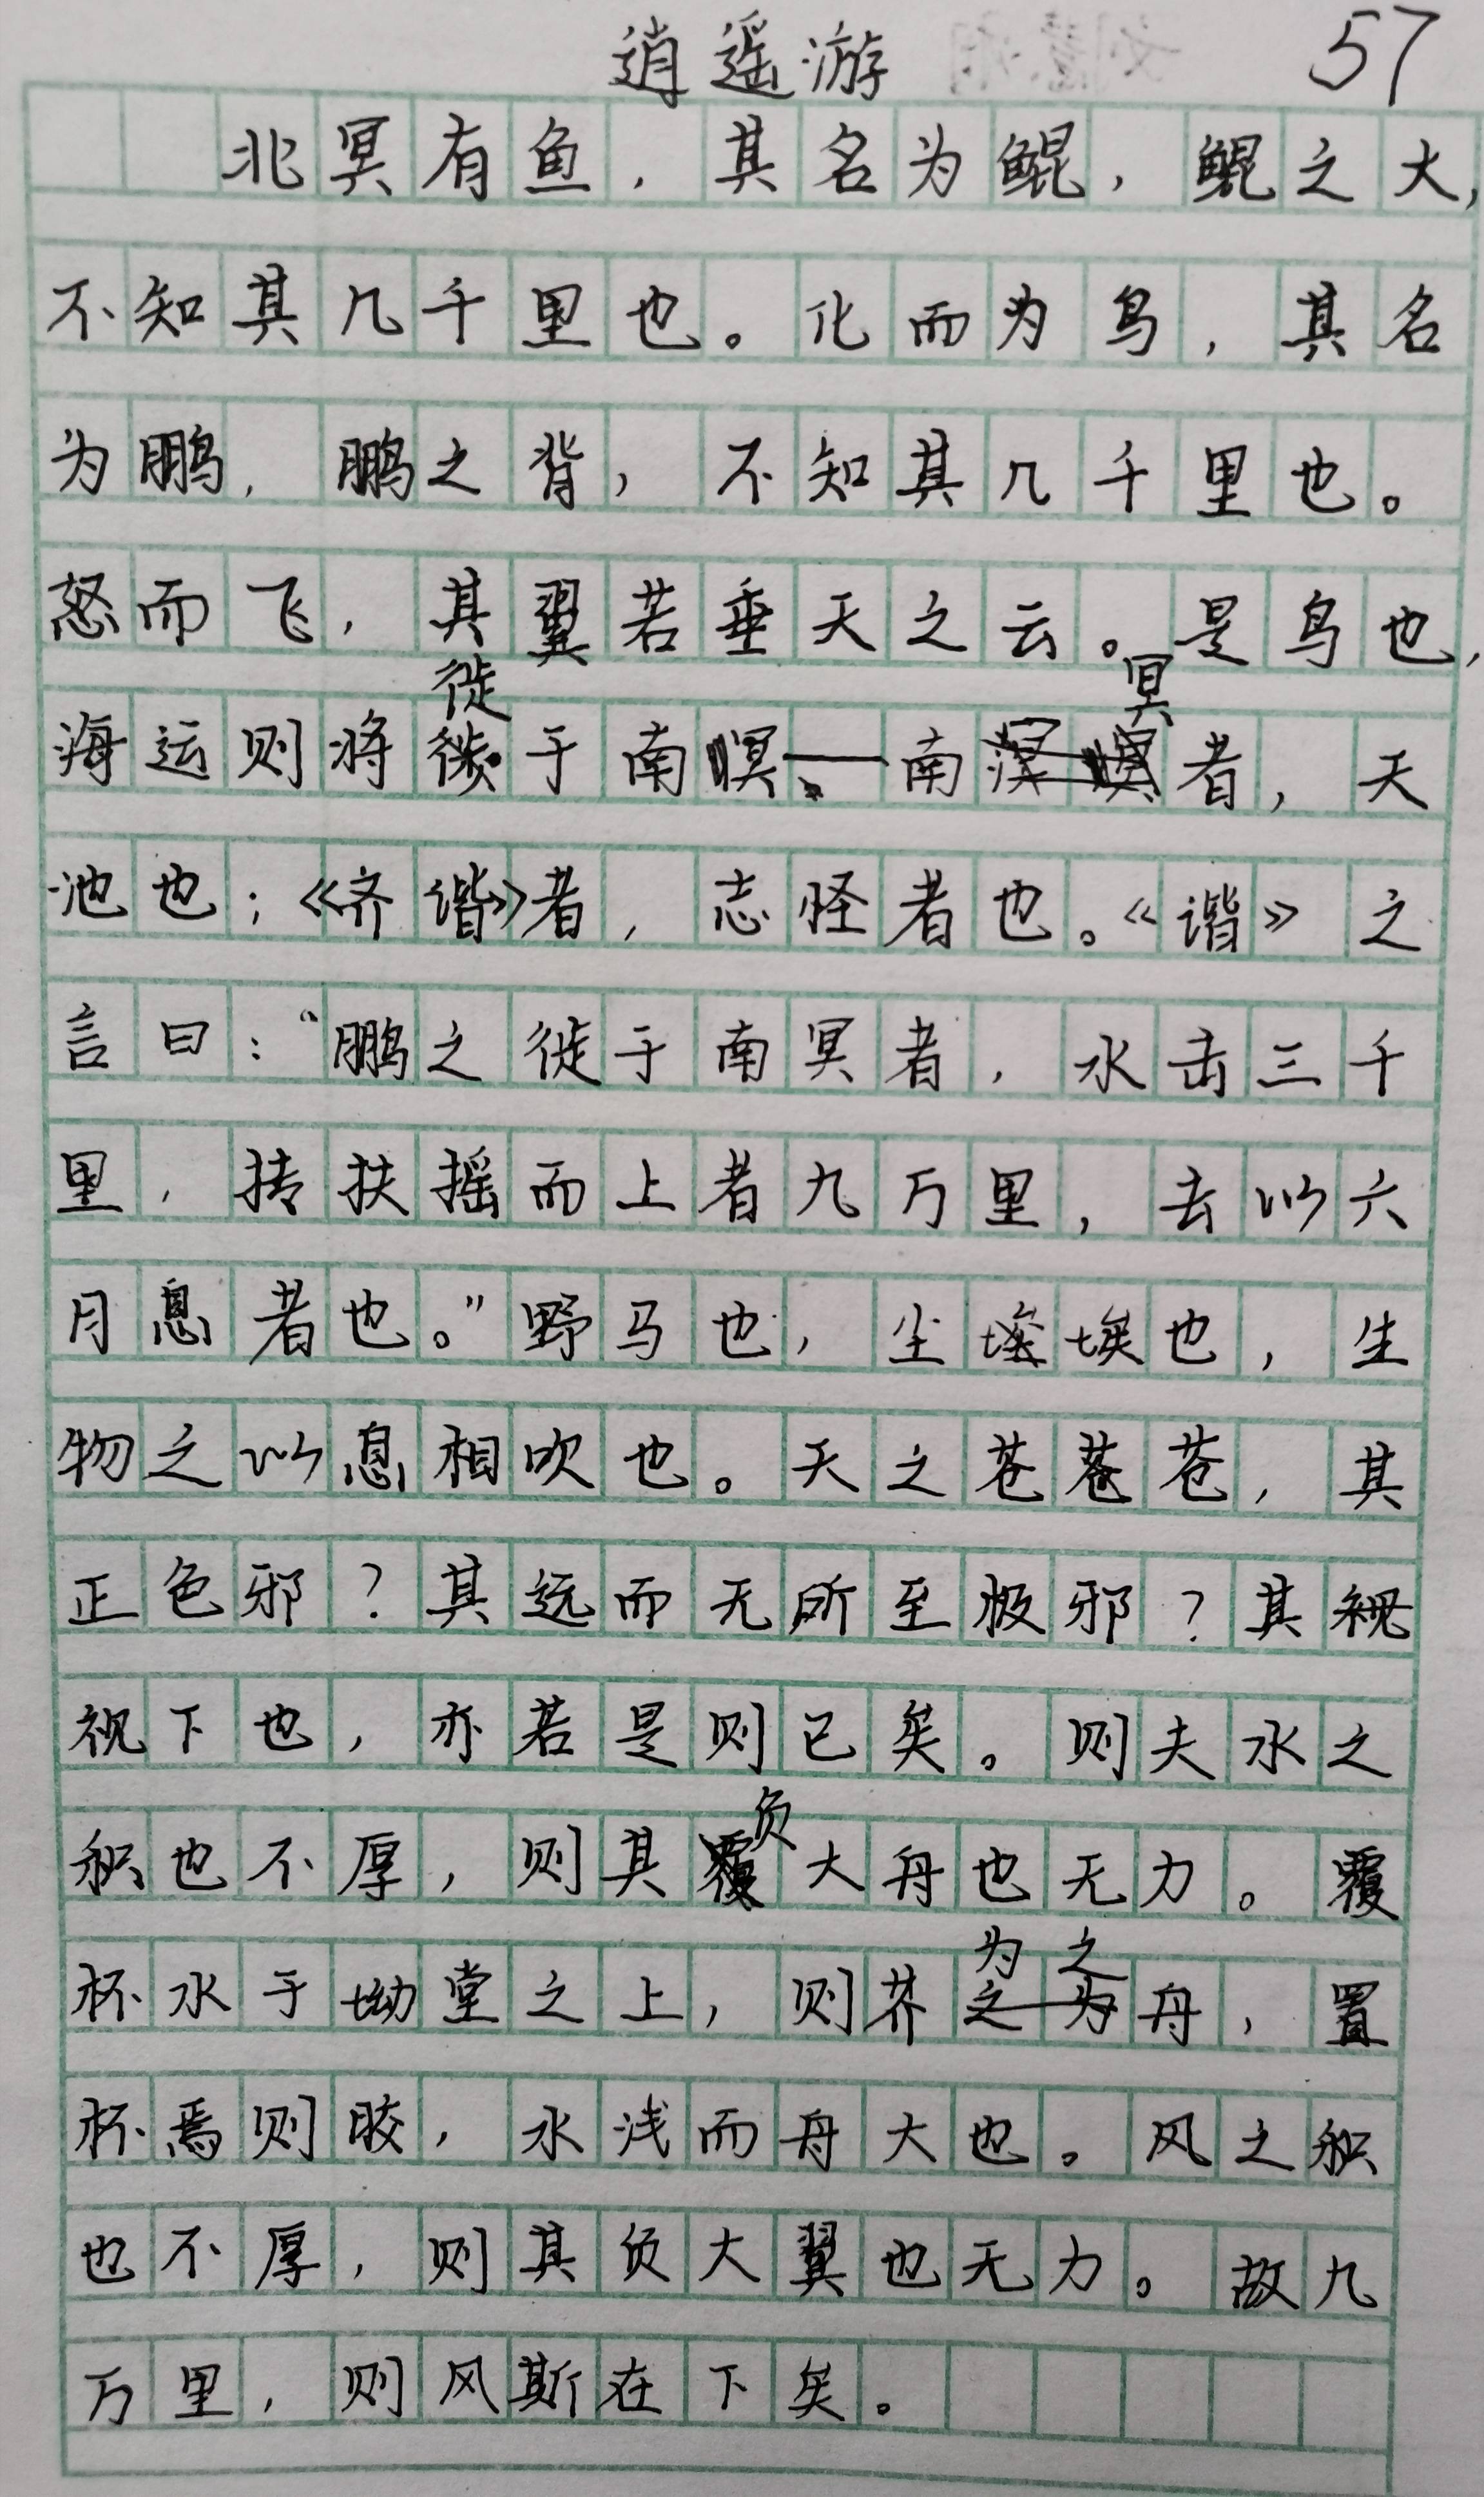 逍遥游 57
北冥有鱼，其名为鲲，鲲之大，
不知其几千里也。化而为鸟，其名
为鹏，鹏之背，不知其几千里也。
怒而飞，其翼若垂天之云。是鸟也，
海运则将徙于南暝、南冥者，天
池也；《齐谐》者，志怪者也。《谐》之
言曰：“鹏之徙于南冥者，水击三千
里，抟扶摇而上者九万里，去以六
月息者也。”野马也，尘埃埃也，生
物之以息相吹也。天之苍苍苍，其
正色邪？其远而无所至极邪？其视
视下也，亦若是则已矣。则夫水之
积也不厚，则其负大舟也无力。覆
杯水于坳堂之上，则芥为之舟，置
杯焉则胶，水浅而舟大也。风之积
也不厚，则其负大翼也无力。故九
万里，则风斯在下矣。